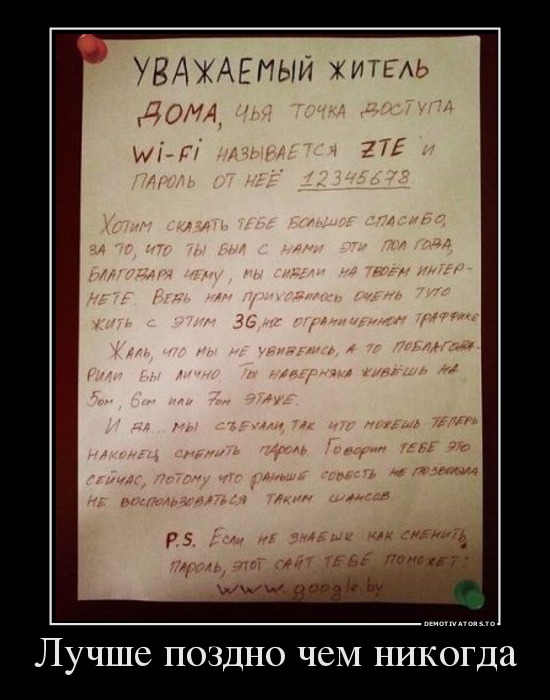 УВАЖАЕМЫЙ ЖИТЕЛЬ
ДОМА, ЧЬЯ ТОЧКА ДОСТУПА
Wi-Fi НАЗЫВАЕТСЯ ZTE И
ПАРОЛЬ ОТ НЕЁ 12345678.
ХОТИМ СКАЗАТЬ ТЕБЕ БОЛЬШОЕ СПАСИБО,
ЗА ТО, ЧТО ТЫ БЫЛ С НАМИ ЭТИ ПОЛ ГОДА,
БЛАГОДАРЯ ЧЕМУ, МЫ СИДЕЛИ НА ТВОЁМ ИНТЕР-
НЕТЕ. ВЕДЬ НАМ ПРИХОДИЛОСЬ ОЧЕНЬ ТУГО
ЖИТЬ С ЭТИМ 3G, НА ОГРАНИЧЕННОМ ТРАФФИКЕ
ЖАЛЬ, ЧТО МЫ НЕ УВИДЕЛИСЬ, А ТО ПОБЛАГОДА-
РИЛИ БЫ ЛИЧНО ТЫ НАВЕРНЯКА ЖИВЁШЬ НА
5ом, 6ом ИЛИ 7ом ЭТАЖЕ.
И ДА... МЫ СЪЕХАЛИ, ТАК ЧТО МОЖЕШЬ ТЕПЕРЬ
НАКОНЕЦ СМЕНИТЬ ПАРОЛЬ. ГОВОРИМ ТЕБЕ ЭТО
СЕЙЧАС, ПОТОМУ ЧТО РАНЬШЕ СОВЕСТЬ НЕ ПОЗВОЛИЛА
НЕ ВОСПОЛЬЗОВАТЬСЯ ТАКИМ ШАНСОМ.
P.S. ЕСЛИ НЕ ЗНАЕШЬ КАК СМЕНИТЬ
ПАРОЛЬ, ЭТОТ САЙТ ТЕБЕ ПОМОЖЕТ:
www.google.by
DEMOTIVATORS.TO
Лучше поздно чем никогда